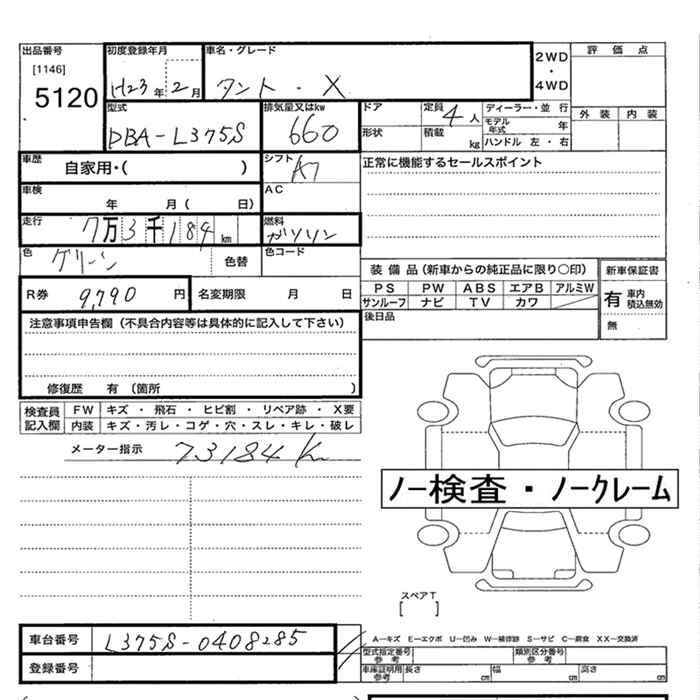 出品番号 初度登録年月 車名・グレード 2WD・4WD 評価点
[1146]
5120 H23年 2月 タント・X
外装 内装
型式 排気量又はkw ドア 定員 4人 ディーラー・並 行
DBA-L375S 660 形状 積載 kg モデル年式 年
ハンドル 左・右
車歴 自家用・( ) シフト AT 正常に機能するセールスポイント
車検 年 月( 日) AC
走行 7万3千184km 燃料 ガソリン
色 グリーン 色替 色コード
装備品(新車からの純正品に限り○印) 新車保証書
R券 9,790円 名変期限 月 日 PS PW ABS エアB アルミW 有 車内積込無効
サンルーフ ナビ TV カワ
注意事項申告欄(不具合内容等は具体的に記入して下さい) 後日品 無
修復歴 有 (箇所 )
検査員記入欄 FW キズ・飛石・ヒビ割・リペア跡・X要
内装 キズ・汚レ・コゲ・穴・スレ・キレ・破レ
メーター指示 73184K
ノー検査・ノークレーム
スペアT
[ ]
車台番号 L375S-0408285 A-キズ E-エクボ U-凹み W-補修跡 S-サビ C-腐食 XX-交換済
型式指定番号 参考 類別区分番号 参考
登録番号 車庫証明用 参考 長さ cm 幅 cm 高さ cm